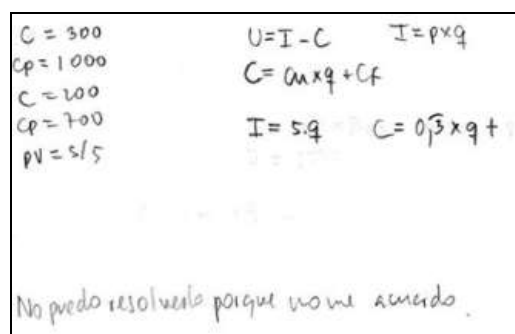 C = 300
Cp = 1000
C = 200
Cp = 700
PV = S/5
U = I - C
I = p x q
C = Cu x q + Cf
I = 5.q
C = 0,3 x q +
No puedo resolverlo porque no me acuerdo.